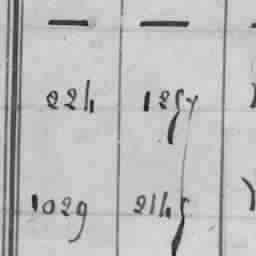 — —
224 1257
1029 2145